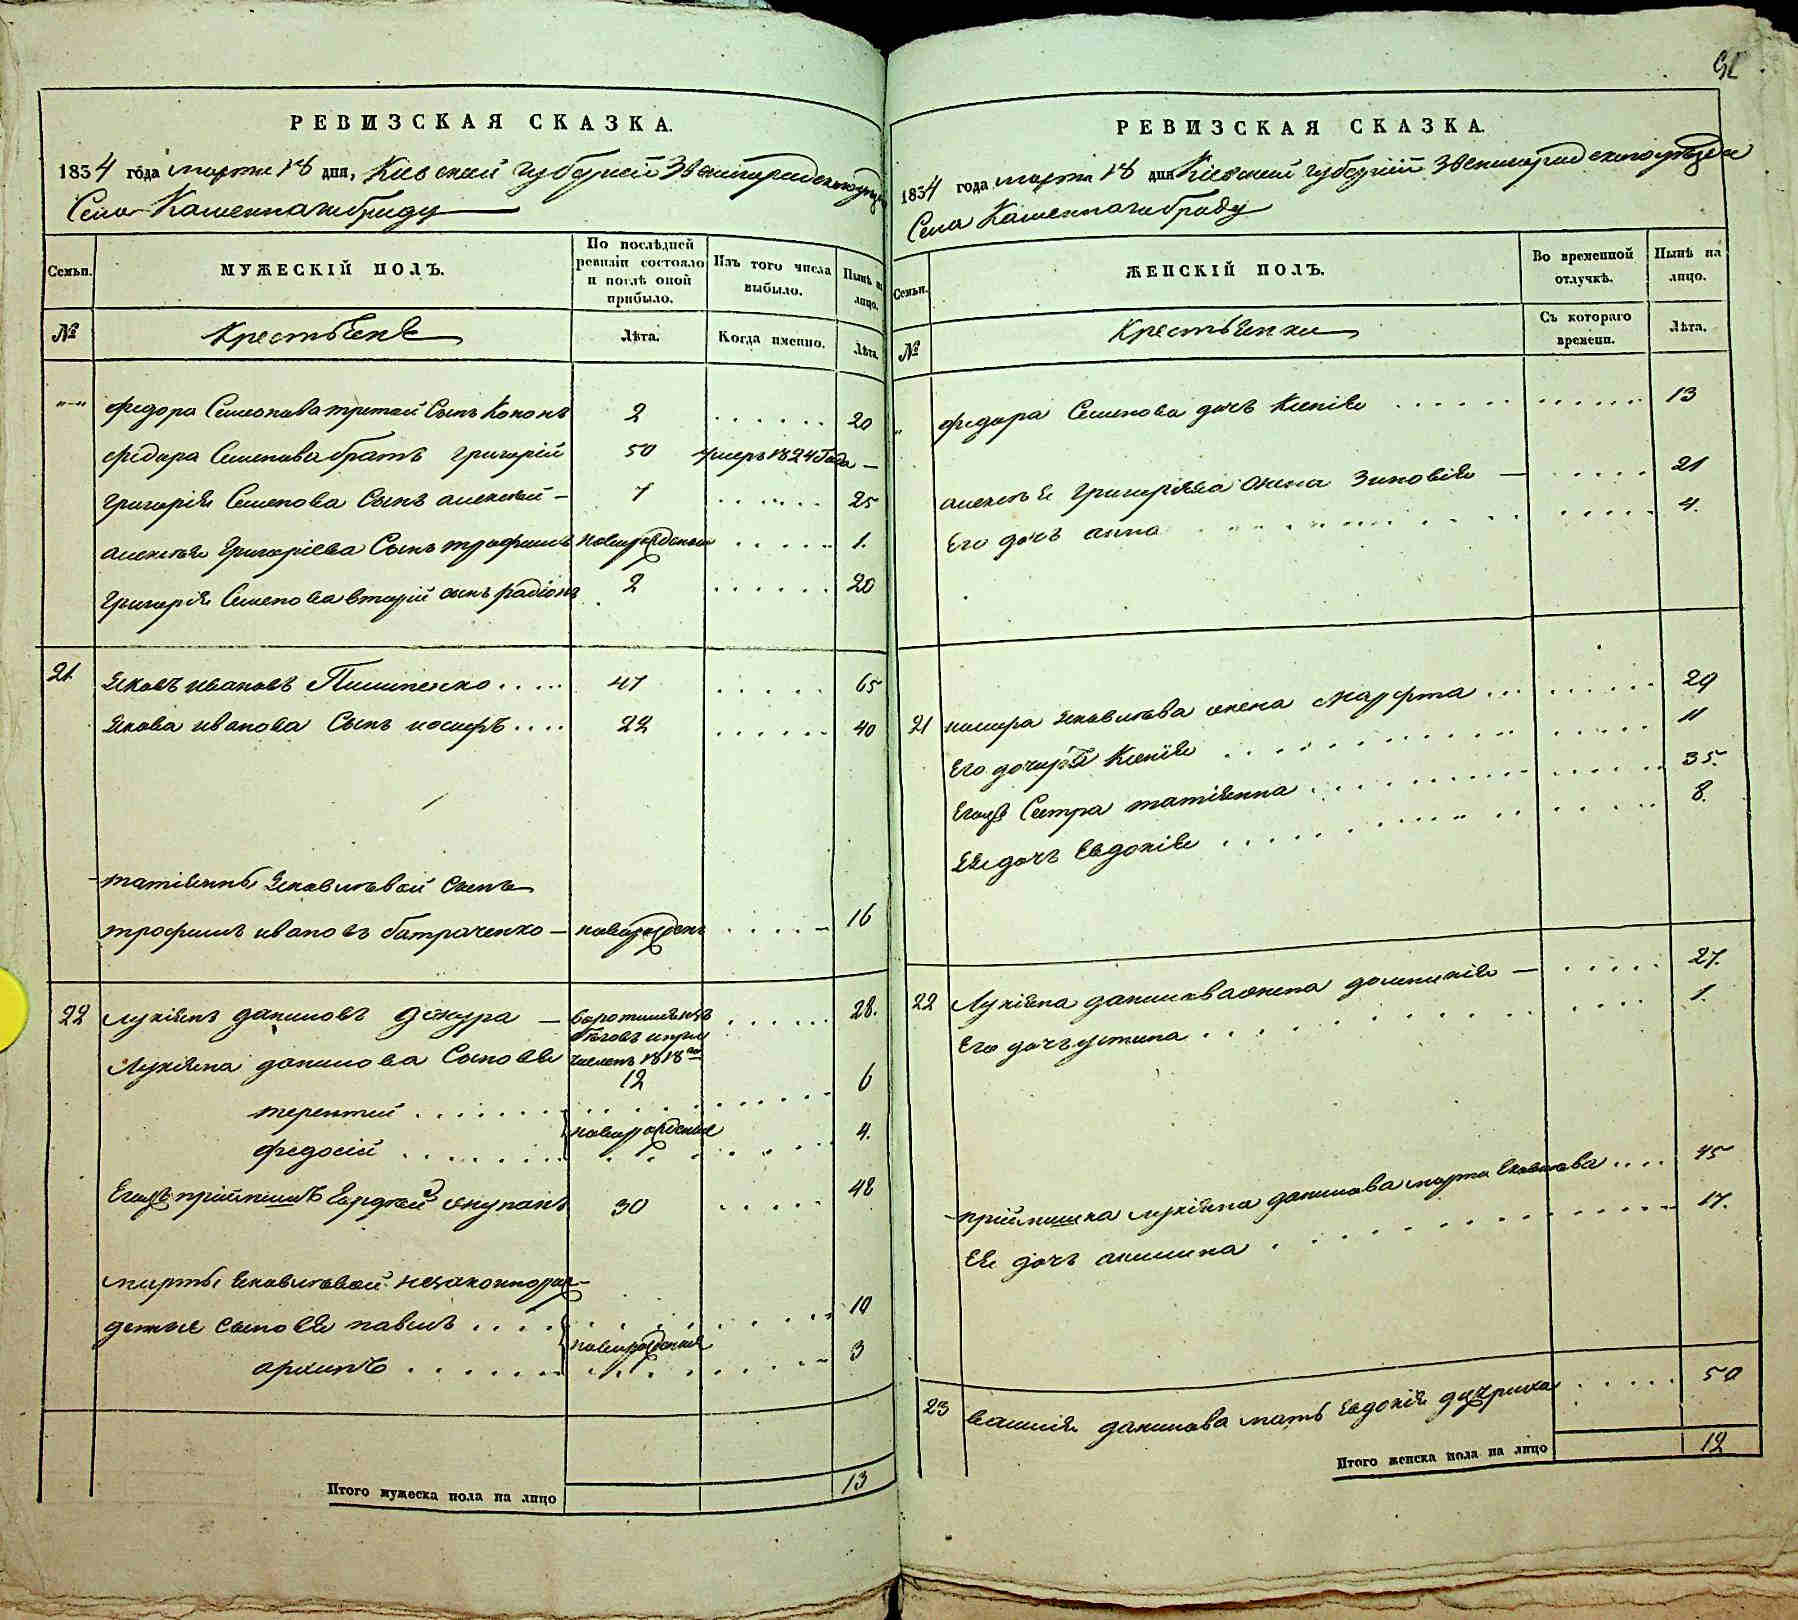 РЕВИЗСКАЯ СКАЗКА.
1834 года марта 18 дня, Киевской губернии Звенигородского уезда
Села Каменного броду
Семьи.
МУЖЕСКІЙ ПОЛЪ.
По послѣдней
ревизіи состояло
и послѣ оной
прибыло.
Изъ того числа
выбыло.
Нынѣ на
лицо.
№
Крестьяне
Лѣта.
Когда именно.
Лѣта.
"-" федора Семенова третий Сынъ Кононъ 2 . . . . . . 20
федора Семенова братъ григорій 50 умеръ 1824 Года —
григорія Семенова Сынъ алексей - 7 . . . . . . 25
алексея григоріева Сынъ трофимъ новорожденный . . . . . 1.
григорія Семенова вторій сынъ радіонъ 2 . . . . . . 20
21 яковъ ивановъ Пилипенко . . . . 47 . . . . . 65
якова иванова Сынъ иосифъ . . . . 22 . . . . . . 40
татіянны яковлевой Сынъ
трофимъ ивановъ батраченко — новорожденъ . . . . . 16
22 лукіянъ даниловъ — воротился изъ . . . . . 28.
бѣговъ и при
лукіяна данилова Сыновя численъ 1818го
12
терентий . . . . . . 6
федосій . . . . . . новорожденные 4.
30 . . . . . 48
марты яковлевой незаконнорож-
денные сыновя павелъ . . . . 10
архипъ . . . . . . новорожденные 3
Итого мужеска пола на лицо
13
РЕВИЗСКАЯ СКАЗКА.
1834 года марта 18 дня Кіевской губерніи Звенигородского уезда
Села Каменного броду
Семьи.
ЖЕНСКІЙ ПОЛЪ.
Во временной
отлучкѣ.
Нынѣ на
лицо.
№
Крестьянки
Съ котораго
времени.
Лѣта.
" федора Семенова дочь Ксенія . . . . . . 13
алексея григоріева жена Зиновія — . . . . 21
Его дочъ анна . . . . . . 4.
21 иосифа яковлева жена марфта . . . . . . 29
Его дочъ Ксенія . . . . . . 11
Егожъ Сестра татіянна . . . . . . 35.
Ея дочъ Евдокія . . . . . . 8.
22 Лукіяна данилова жена доминикія — . . . . . 27.
Его дочъ устина . . . . . . 1.
пріймишка лукіяна данилова марта яковлева . . . . 45
Ея дочъ акилина . . . . . . 17.
23 василія данилова мать Евдокія . . . . . 50
Итого женска пола на лицо
12